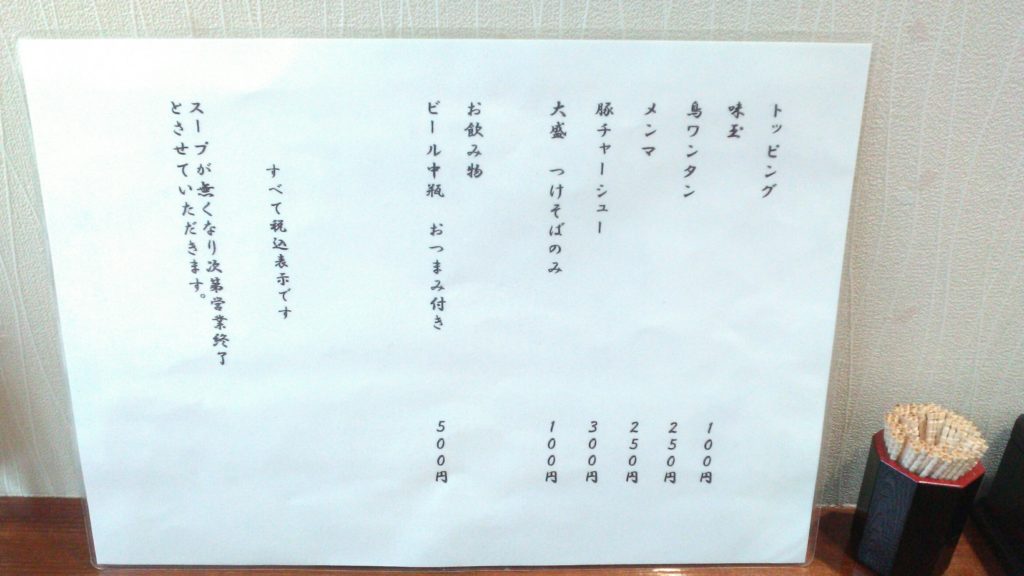 トッピング
味玉 100円
鳥ワンタン 250円
メンマ 250円
豚チャーシュー 300円
大盛 つけそばのみ 100円
お飲み物
ビール中瓶 おつまみ付き 500円
すべて税込表示です
スープが無くなり次第営業終了
とさせていただきます。